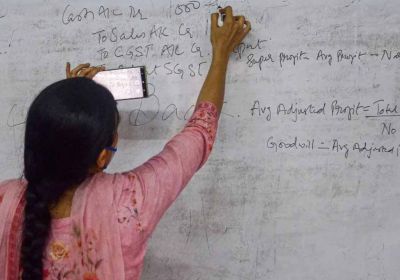 Cash A/c Dr 1000
To Sales A/c Cr 1
To CGST A/c Cr
SGST
Super Profit = Avg Profit - No
Avg Adjusted Profit = Total
No
Goodwill = Avg Adjusted